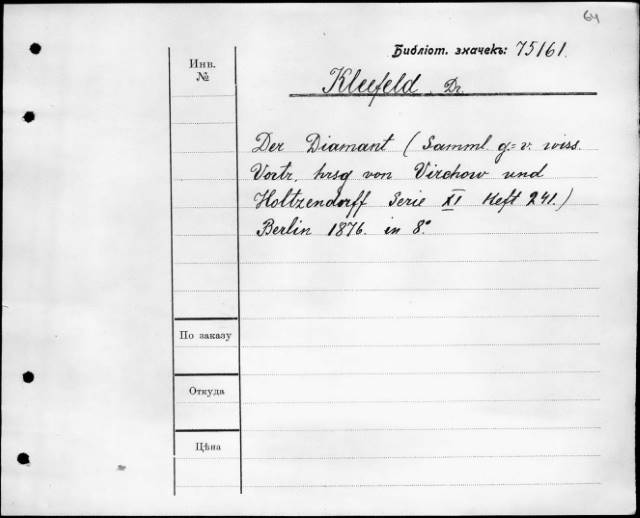 64
Библіот. значекъ: 75161.
Инв.
№
Kleefeld Dr.
Der Diamant (Samml g=v. wiss.
Vortr. hrsg von Virchow und
Holtzendorff Serie XI Heft 241.)
Berlin 1876. in 8°.
По заказу
Откуда
Цѣна